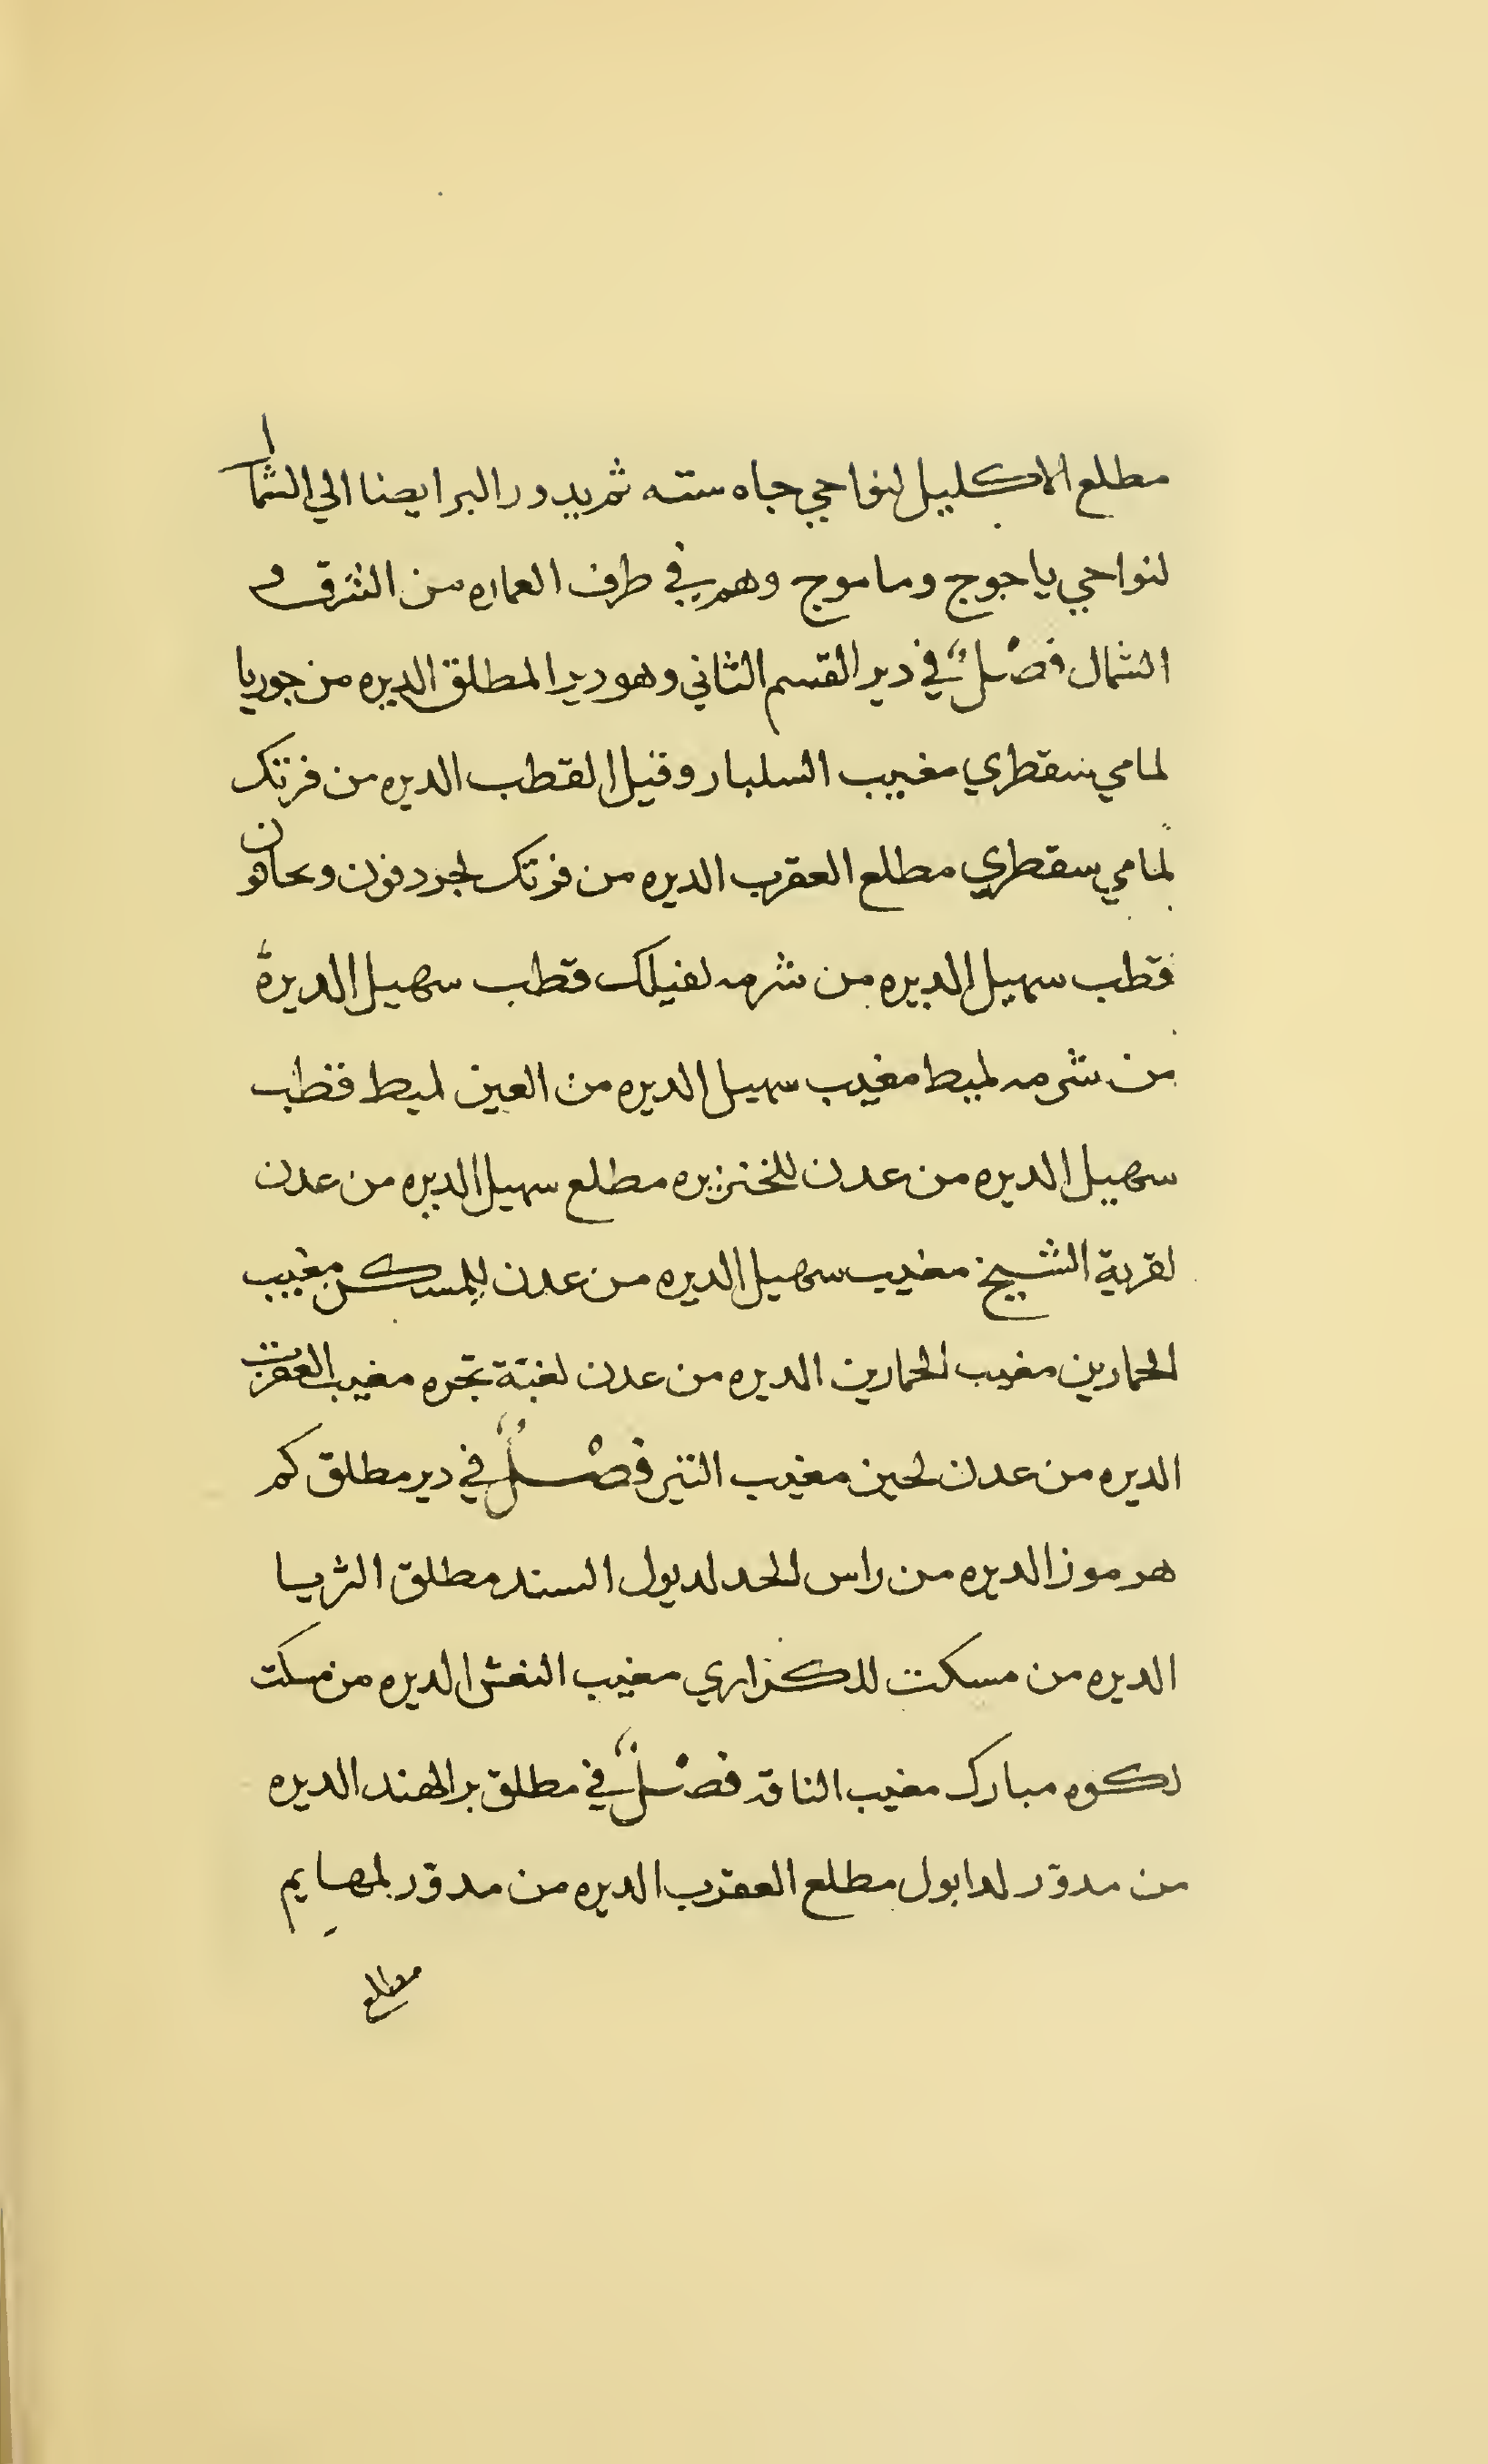 مطلع الاكليل لنواحي جاه سته ثم يدور البر ايضا الي الشما
لنواحي ياجوج وماموج وهم في طرف العماره من الشرق و
الشمال فصْلٌ في دير القسم الثاني وهو دير المطلق الديره من جوريا
لمامي سقطري مغيب السلبار وقيل القطب الديره من فرتك
لمامي سقطري مطلع العقرب الديره من فرتك لجردفون وحافون
قطب سهيل الديره من شرمه لفيلك قطب سهيل الديرة
من شرمه لميط مغيب سهيل الديره من العين لميط قطب
سهيل الديره من عدن للخنزيره مطلع سهيل الديره من عدن
لقرية الشيخ مغيب سهيل الديره من عدن للمسكن مغيب
الحمارين مغيب الحمارين الديره من عدن لغبة تجره مغيب العقرب
الديره من عدن لحين مغيب التير فصْلٌ في دير مطلق كم
هرموز الديره من راس الحد لديول السند مطلق الثريا
الديره من مسكت للكراري مغيب النعش الديره من مسكت
لكوه مبارك مغيب الناقه فصْلٌ في مطلق بر الهند الديره
من مدوّر لدابول مطلع العقرب الديره من مدوّر لمهايم
مطلع